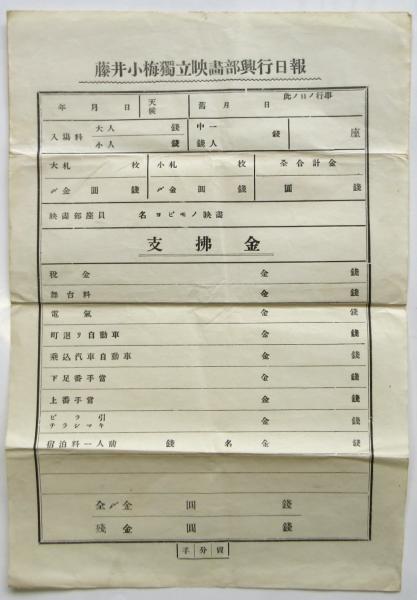 藤井小梅獨立映畵部興行日報
年 月 日 天候 舊 月 日 此ノ日ノ行事
入場料 大人 錢 中人 一錢 錢 座
小人 錢
大札 枚 小札 枚 金合計金
〆金 圓 錢 〆金 圓 錢 圓 錢
映畵部座員 名 ヨビモノ映畵
支拂金
稅金 金 錢
舞台料 金 錢
電氣 金 錢
町廻リ自動車 金 錢
乘込汽車自動車 金 錢
下足番手當 金 錢
上番手當 金 錢
ビラ引 チラシマキ 金 錢
宿泊料一人前 錢 名 金 錢
全〆金 圓 錢
殘金 圓 錢